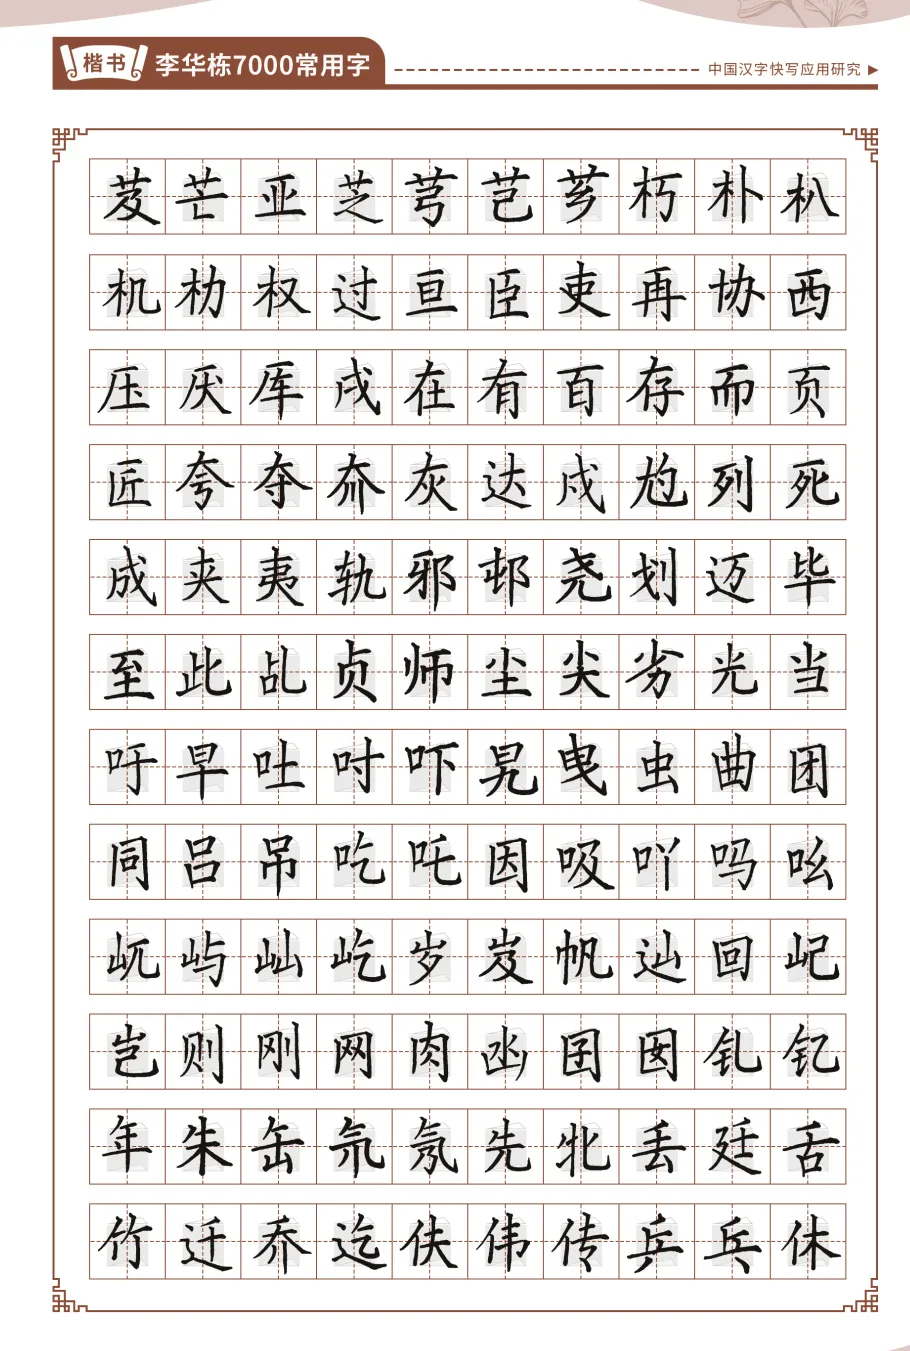 楷书 李华栋7000常用字 中国汉字快写应用研究
芨芒亚芝芎芑芗朽朴朳
机朸权过亘臣吏再协西
压厌厍戌在有百存而页
匠夸夺夼灰达戍尥列死
成夹夷轨邪邨尧划迈毕
至此乩贞师尘尖劣光当
吁早吐吋吓旯曳虫曲团
同吕吊吃吒因吸吖吗吆
屼屿屾屹岁岌帆辿回屺
岂则刚网肉凼囝囡钆钇
年朱缶氘氖先牝丢廷舌
竹迁乔迄伕伟传乒乓休